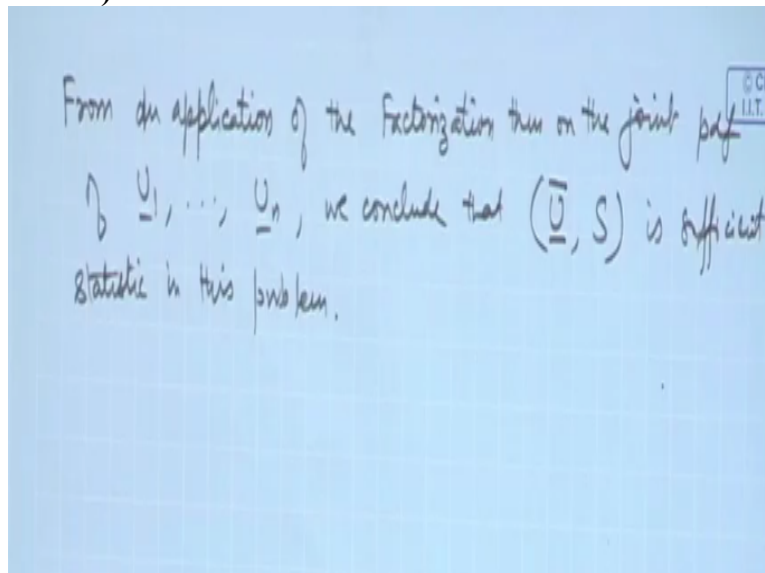 From an application of the Factorization thm on the joint pdf
of U̲₁, ..., U̲ₙ, we conclude that (U̲̅, S) is sufficient
statistic in this problem.
© C
I.I.T.